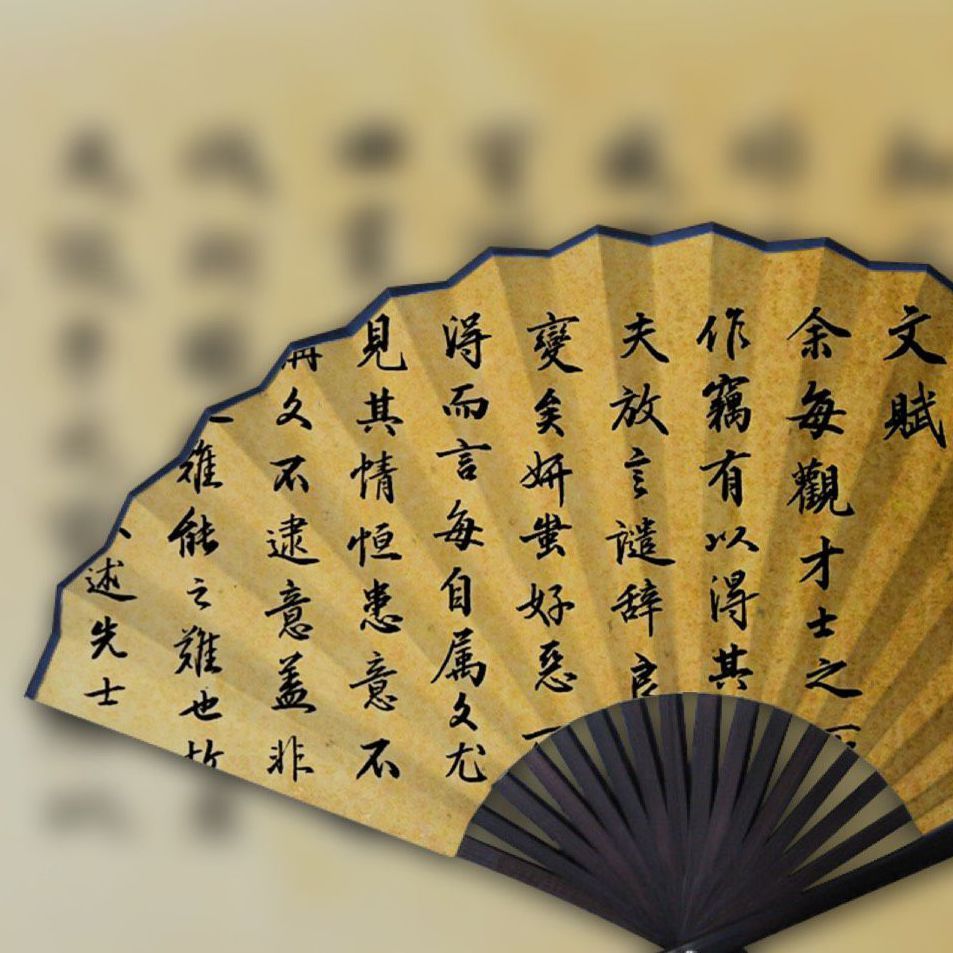 文賦
余每觀才士之
作竊有以得其
夫放言譴辞良
變矣妍蚩好惡
得而言每自属文尤
見其情恒患意不
文不逮意盖非
難能之難也故
述先士